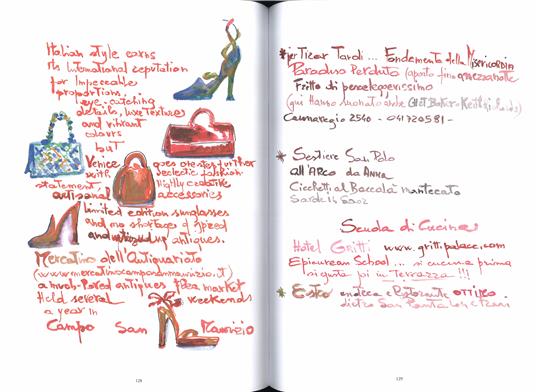 Italian style earns
its International reputation
for Impeccable
proportions,
eye-catching
details, luxe textures
and vibrant
colours
but
Venice goes one step further
with eclectic fashion
statement highly creative
artisanal accessories
limited edition sunglasses
and no shortage of speed
and antiques.
Mercatino dell'Antiquariato
(www.mercatinocamposanmaurizio.it)
a much-loved antiques flea market
Held several weekends
a year in
Campo San Maurizio
128
* per Tirar Tardi ... Fondamenta della Misericordia
Paradiso Perduto (aperto fino mezzanotte
Fritto di pesce
(qui Hanno suonato anche Chet Baker e Keith
Cannaregio 2540 - 041720581 -
* Sestiere San Polo
all'ARCO da ANNA
Cicchetti al Baccalà mantecato
Sarde in Saor
Scuola di Cucina
Hotel Gritti www.grittipalace.com
Epicurean School ... si cucina prima
si gusta poi in Terrazza !!!
* Estro enoteca e Ristorante OTTIMO.
dietro San Pantalon e Frari
129